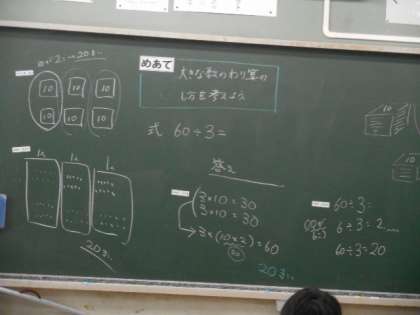 10×2=20こ
10 10 10
10 10 10
めあて
大きな数のわり算の
しかたを考えよう
式 60÷3=
答え
1人 1人 1人
20こ
3×10=30
3×10=30
3×(10×2)=60
20
20こ
60÷3=
6÷3=2
60÷3=20